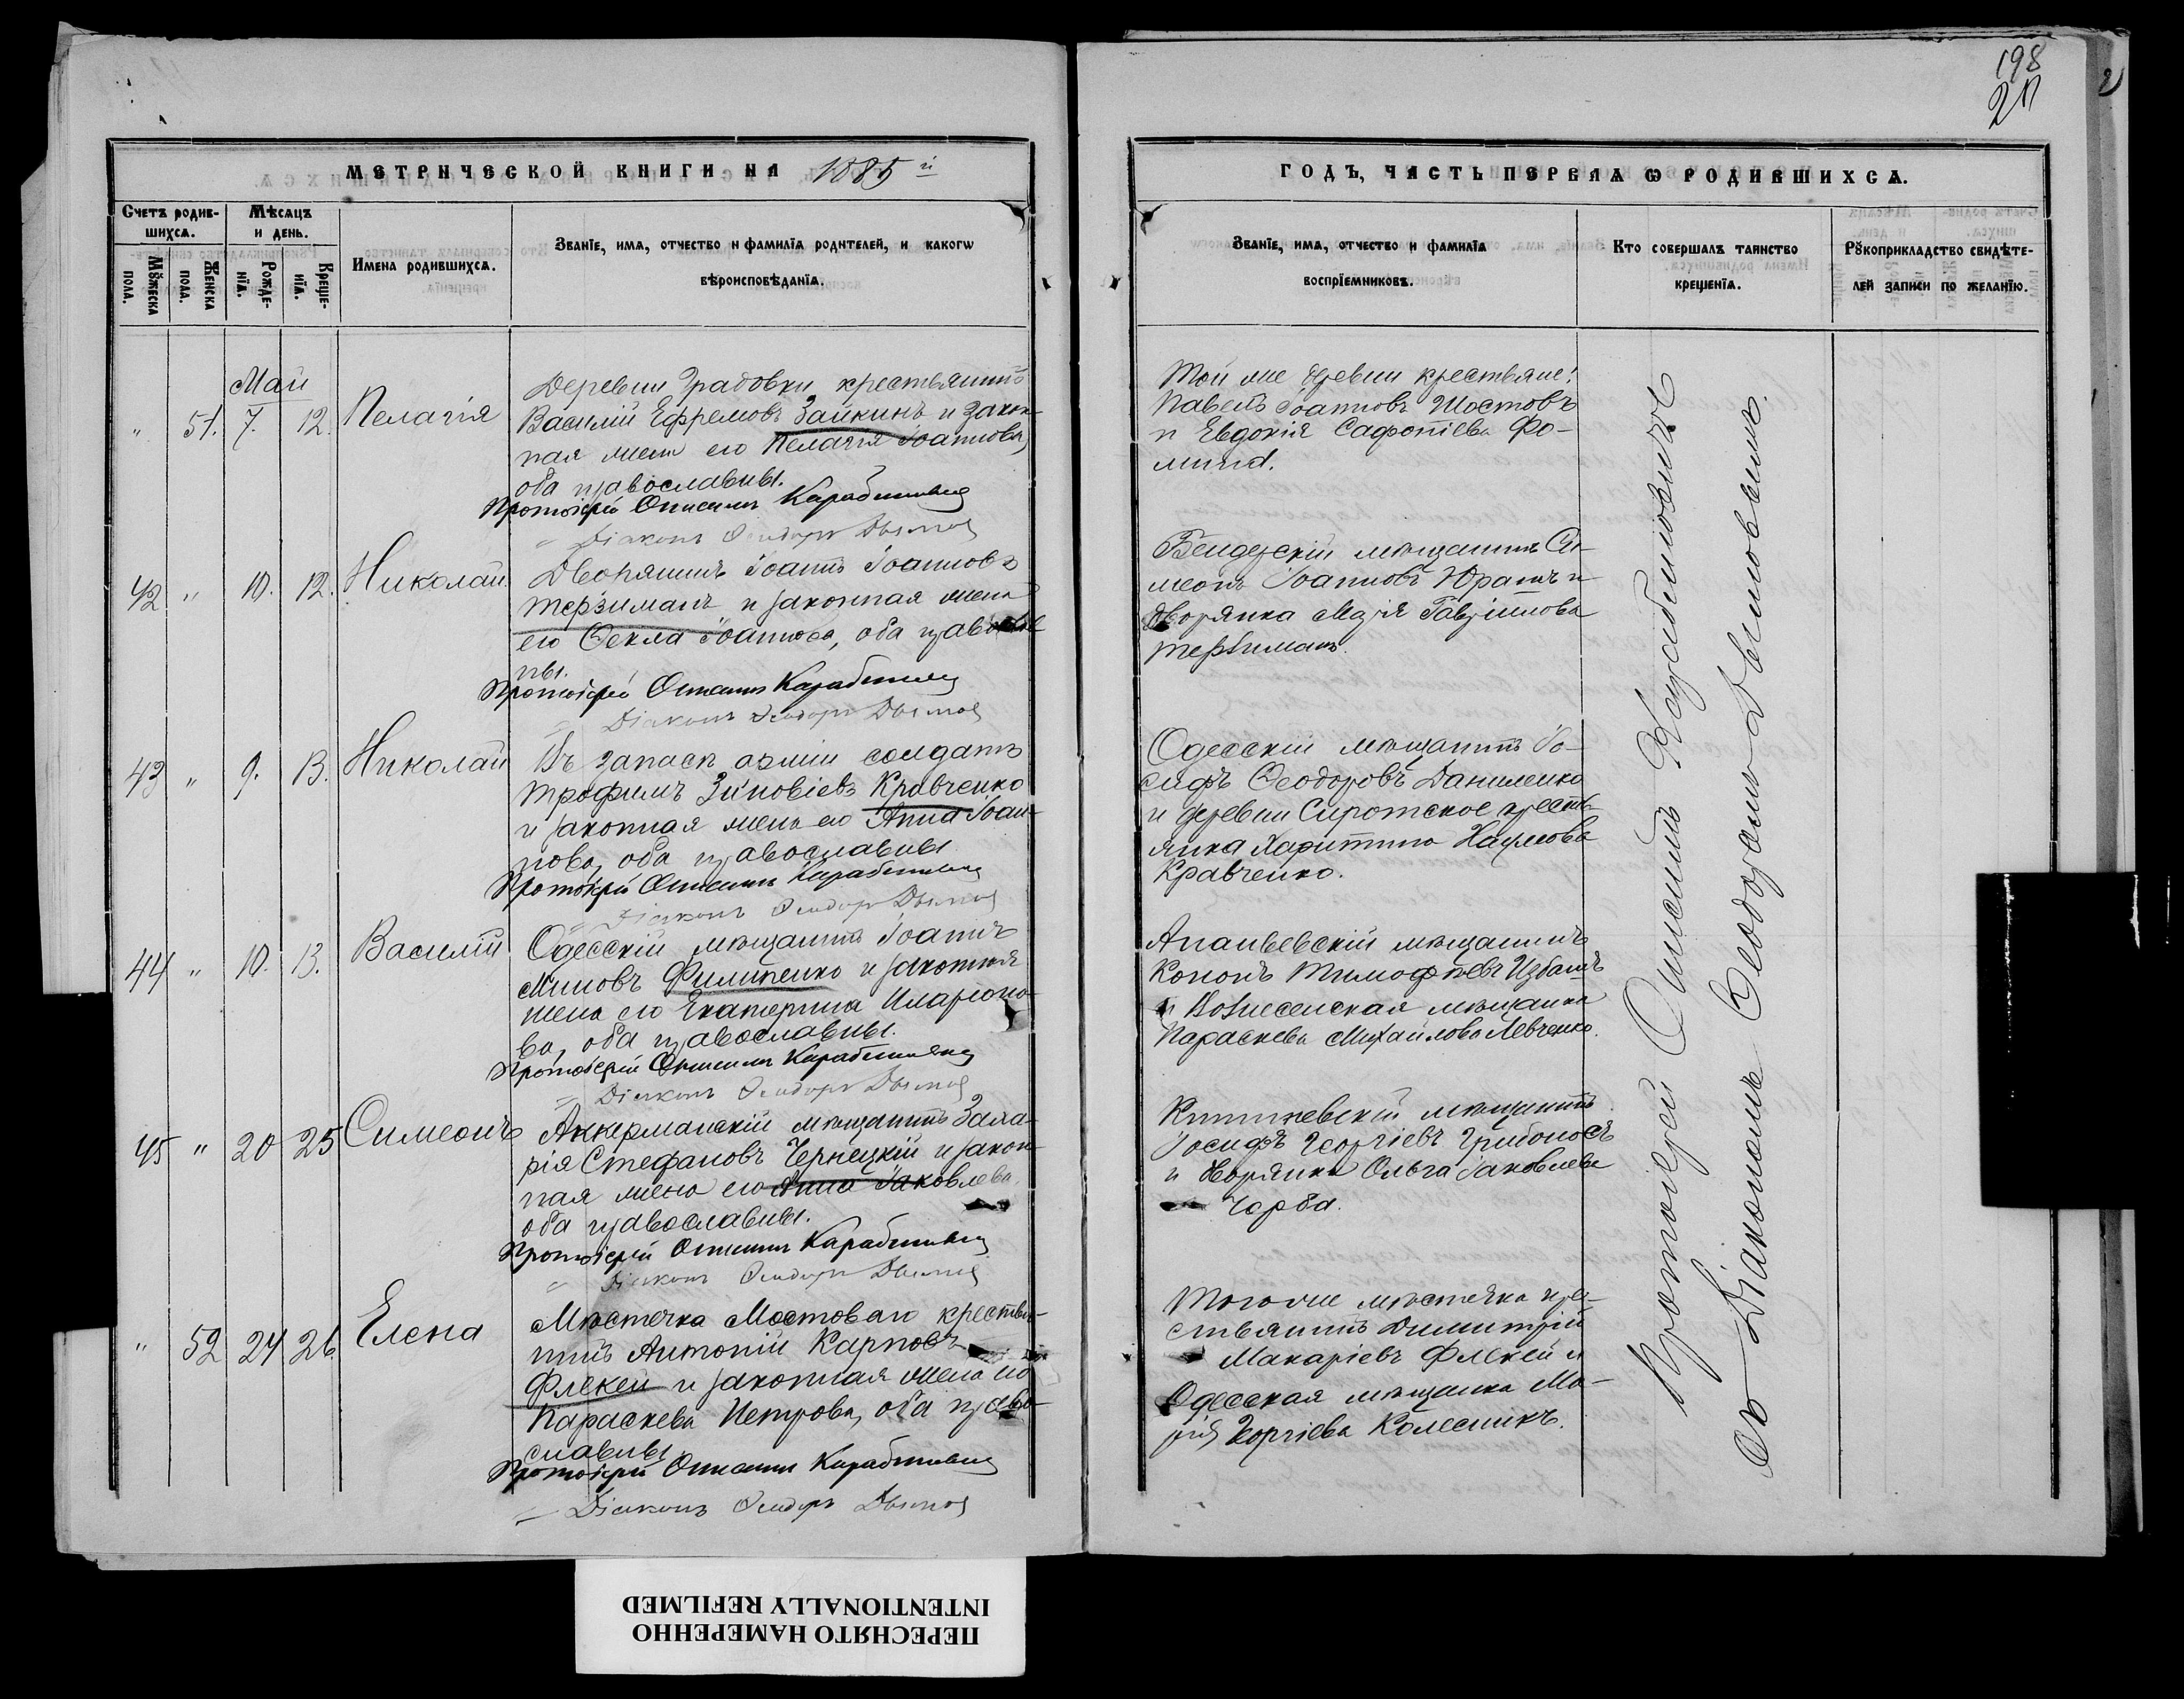 198
21
МЕТРИЧЕСКОЙ КНИГИ НА 1885й
ГОДЪ, ЧАСТЬ ПЕРВАЯ Ѡ РОДИВШИХСѦ.
Счетъ родив-
шихсѧ.
Мѣсяцъ
и день.
Мꙋжеска
пола.
Женска
пола.
Рожде-
нїѧ.
Креще-
нїѧ.
Имена родившихсѧ.
Званїе, имѧ, отчество и фамилїѧ родителей, и какогѡ
вѣроисповѣданїѧ.
Званїе, имѧ, отчество и фамилїѧ
воспрїемниковъ.
Кто совершалъ таинство
крещенїѧ.
Рꙋкоприкладство свидѣте-
лей записи по желанїю.
Май
" 51. 7. 12. Пелагія
Деревни Градовки крестьянинъ
Василій Ефремовъ Зайкинъ и закон-
ная жена его Пелагія Іоаннова,
оба православны.
Протоіерей Онисимъ
Діаконъ Ѳеодоръ
Той же деревни крестьяне:
Павелъ Іоанновъ Шостовъ
и Евдокія Сафоніева Фо-
мина.
42 " 10. 12. Николай
Дворянинъ Іоаннъ Іоанновъ
Терзиманъ и законная жена
его Ѳекла Іоаннова, оба православ
ны.
Протоіерей Онисимъ
Діаконъ Ѳеодоръ
Бендерскій мѣщанинъ Си-
меонъ Іоанновъ Юрашъ и
дворянка Марія Гавріилова
Терзиманъ.
43 " 9. 13. Николай
Въ запасѣ арміи солдатъ
Трофимъ Зиновіевъ Кравченко
и законная жена его Анна Іоан-
нова, оба православны.
Протоіерей Онисимъ
Діаконъ Ѳеодоръ
Одесскій мѣщанинъ Іо-
сифъ Ѳеодоровъ Даниленко
и деревни Сиротское кресть-
янка Харитина Наумова
Кравченко.
44 " 10. 13. Василій
Одесскій мѣщанинъ Іоаннъ
Миновъ Филипенко и законная
жена его Екатерина Иларіоно-
ва, оба православны.
Протоіерей Онисимъ
Діаконъ Ѳеодоръ
Ананьевскій мѣщанинъ
Кононъ Тимофѣевъ Избашъ
и Вознесенская мѣщанка
Параскева Михайлова Левченко.
45 " 20 25 Симеонъ
Аккерманскій мѣщанинъ Заха-
рія Стефановъ Чернецкій и закон-
ная жена его Анна Іаковлева,
оба православны.
Протоіерей Онисимъ
Діаконъ Ѳеодоръ
Кишиневскій мѣщанинъ
Іосифъ Георгіевъ Грибоносъ
и дворянка Ольга Іаковлева
Чорба.
" 52 24 26. Елена
Мѣстечка Мостоваго крестья-
нинъ Антоній Карповъ
Флекей и законная жена его
Параскева Петрова, оба право-
славны.
Протоіерей Онисимъ
Діаконъ Ѳеодоръ
Того же мѣстечка кре-
стьянинъ Димитрій
Макаріевъ Флекей и
Одесская мѣщанка Ма-
рія Георгіева Колесникъ.
Протоіерей Онисимъ
съ Діакономъ Ѳеодоромъ
ПЕРЕСНЯТО НАМЕРЕННО
INTENTIONALLY REFILMED